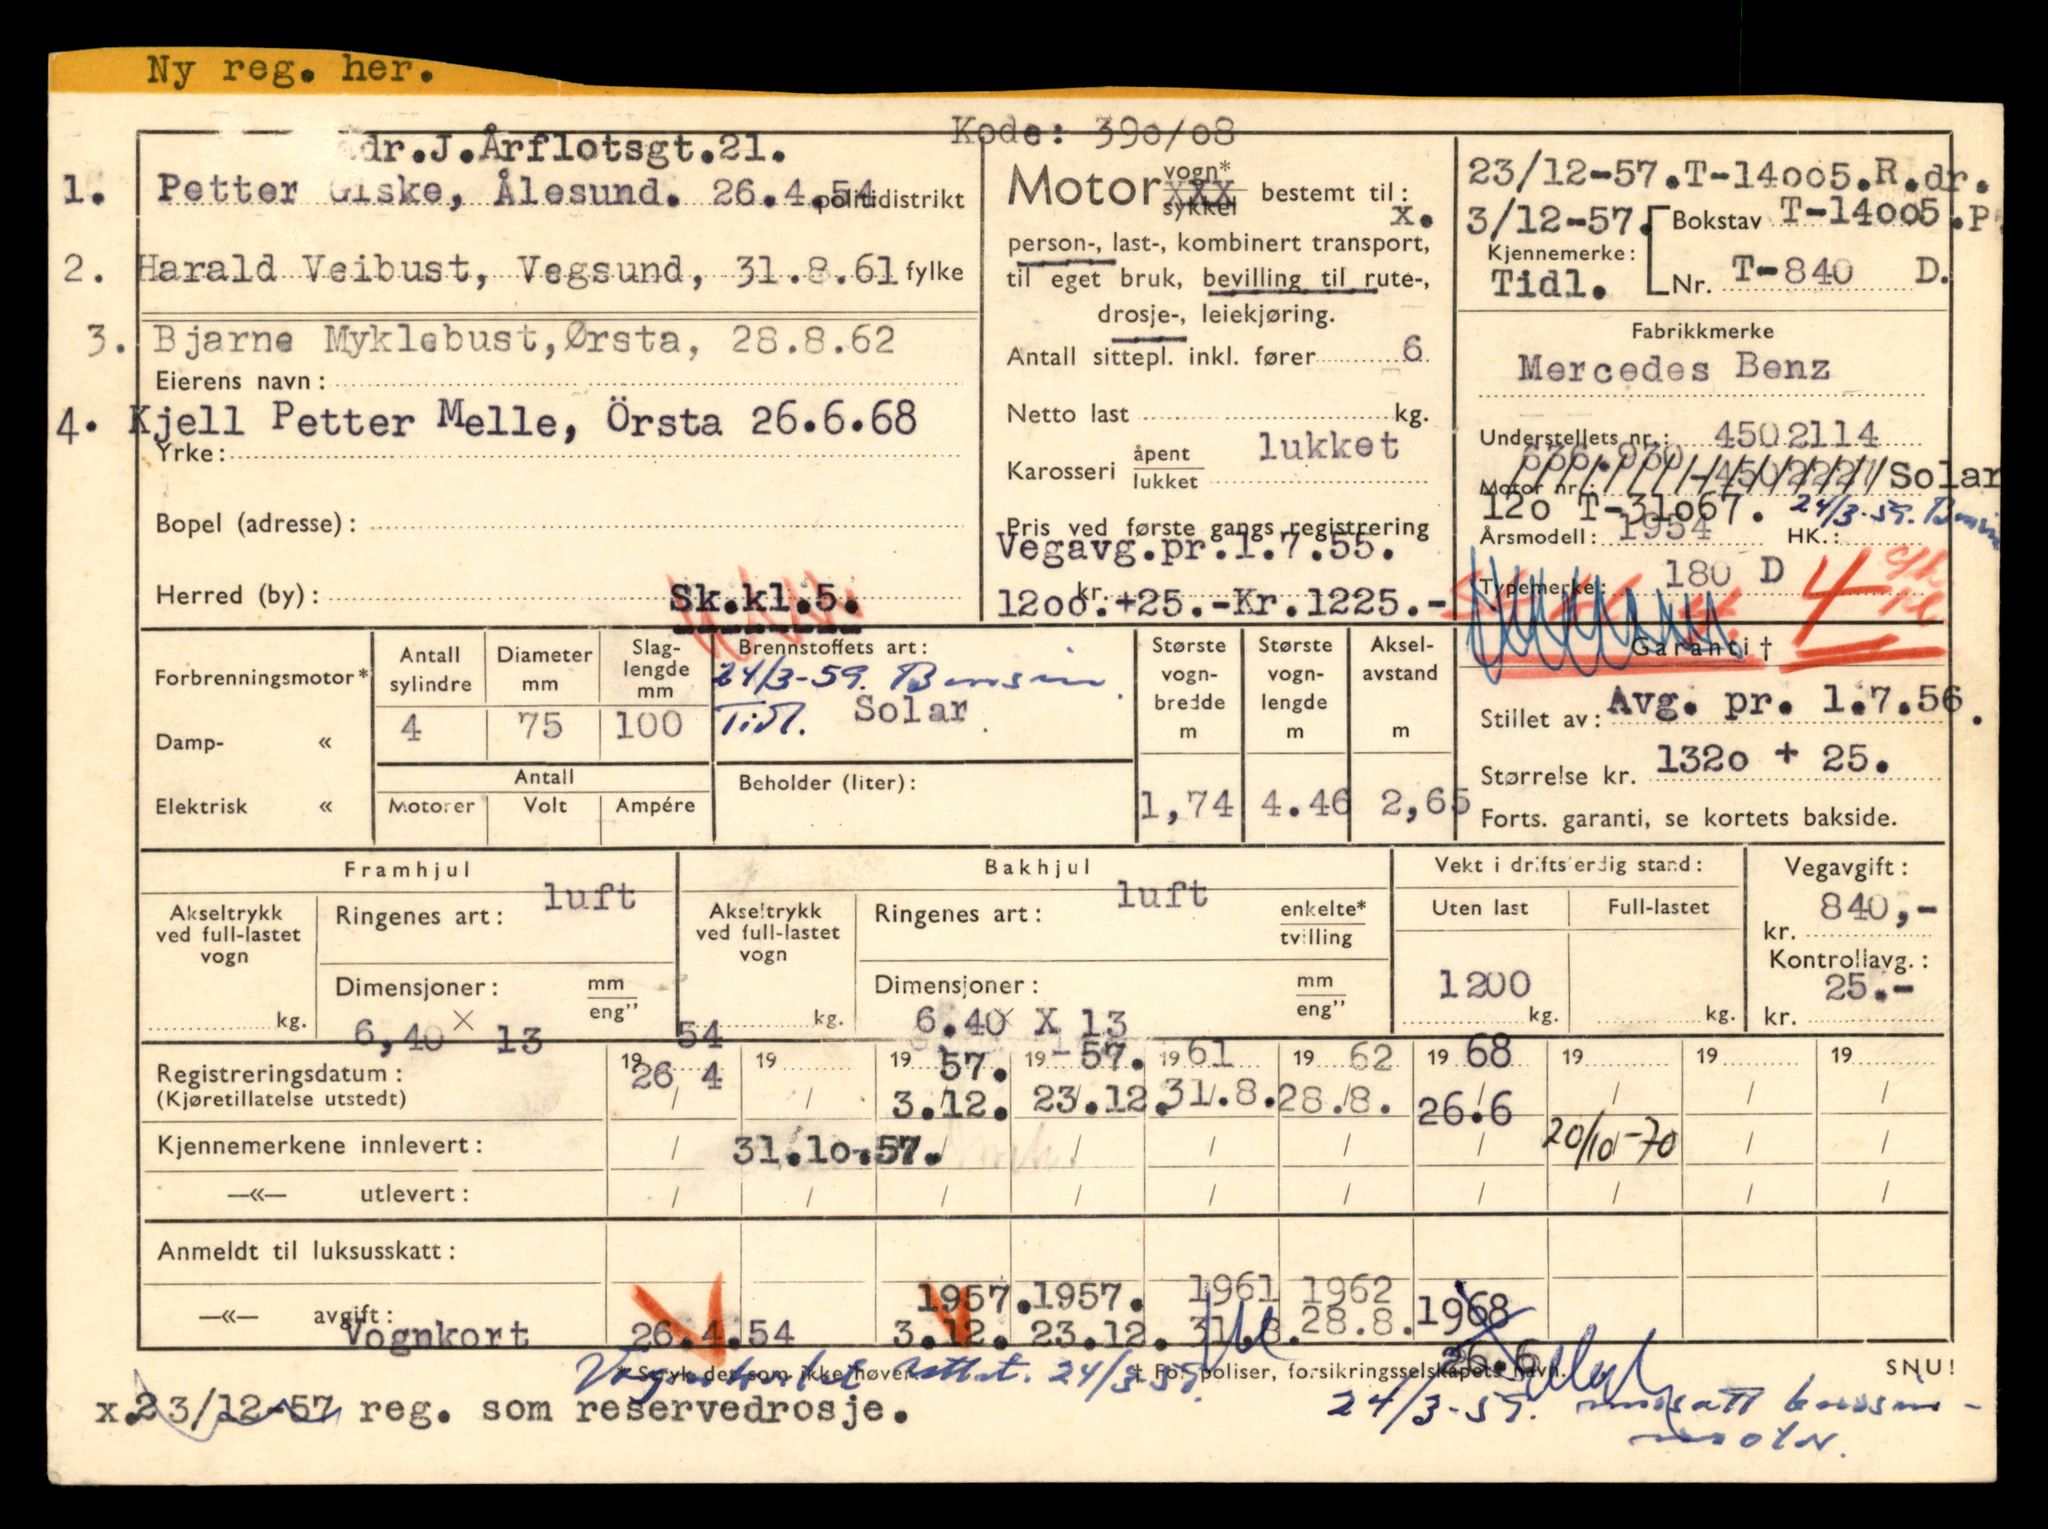 Ny reg. her.
Kode: 390/08
dr.J.Årflotsgt.21.
1. Petter Giske, Ålesund. 26.4.54 politidistrikt
2. Harald Veibust, Vegsund, 31.8.61 fylke
3. Bjarne Myklebust, Ørsta, 28.8.62
Eierens navn:
4. Kjell Petter Melle, Örsta 26.6.68
Yrke:
Bopel (adresse):
Herred (by):
Sk.kl.5.
Motor vogn* XXX sykkel bestemt til:
x.
person-, last-, kombinert transport,
til eget bruk, bevilling til rute-,
drosje-, leiekjøring.
Antall sittepl. inkl. fører 6
Netto last kg.
Karosseri åpent lukket lukket
Pris ved første gangs registrering
Vegavg.pr.1.7.55.
kr.
1200.+25.-Kr.1225.-
23/12-57.T-14005.R.dr.
3/12-57. Bokstav T-14005.P.
Kjennemerke:
Tidl. Nr. T-840 D.
Fabrikkmerke
Mercedes Benz
Understellets nr.: 4502114
636.930-4502227 Solar
Motor nr.:
120 T-31067. 24/3-59. Bensin
Årsmodell: 1954 HK.:
Typemerke: 180 D 4
Garanti †
Stillet av: Avg. pr. 1.7.56.
Størrelse kr. 1320 + 25.
Forts. garanti, se kortets bakside.
Forbrenningsmotor*
Damp- «
Elektrisk «
Antall sylindre
4
Diameter mm
75
Slag-lengde mm
100
Antall
Motorer Volt Ampére
Brennstoffets art:
24/3-59. Bensin.
Tidl. Solar
Beholder (liter):
Største vogn-bredde m
1,74
Største vogn-lengde m
4.46
Aksel-avstand m
2,65
Framhjul
Akseltrykk ved full-lastet vogn
kg.
Ringenes art: luft
Dimensjoner: mm eng”
6,40 x 13
Bakhjul
Akseltrykk ved full-lastet vogn
kg.
Ringenes art: luft enkelte* tvilling
Dimensjoner: mm eng”
6.40 X 13
Vekt i driftsferdig stand:
Uten last Full-lastet
1200
kg. kg.
Vegavgift:
kr. 840,-
Kontrollavg.:
kr. 25.-
Registreringsdatum: 19 54 19 19 57. 19 -57. 19 61 19 62 19 68 19 19 19
(Kjøretillatelse utstedt) 26 4 / 3.12. 23.12. 31.8. 28.8. 26.6 / / /
Kjennemerkene innlevert: / 31.10.57. / / / / / 20/10-70 / /
—«— utlevert: / / / / / / / / / /
Anmeldt til luksusskatt:
1957. 1957. 1961 1962 1968
—«— avgift:
Vognkort 26.4.54 3.12. 23.12. 31.8. 28.8. 26.6
* Stryk det som ikke høver. † For poliser, forsikringsselskapets navn. SNU!
Vognkortet rettet. 24/3-59.
x.23/12-57 reg. som reservedrosje.
24/3-59. innsatt bensin-
motor.